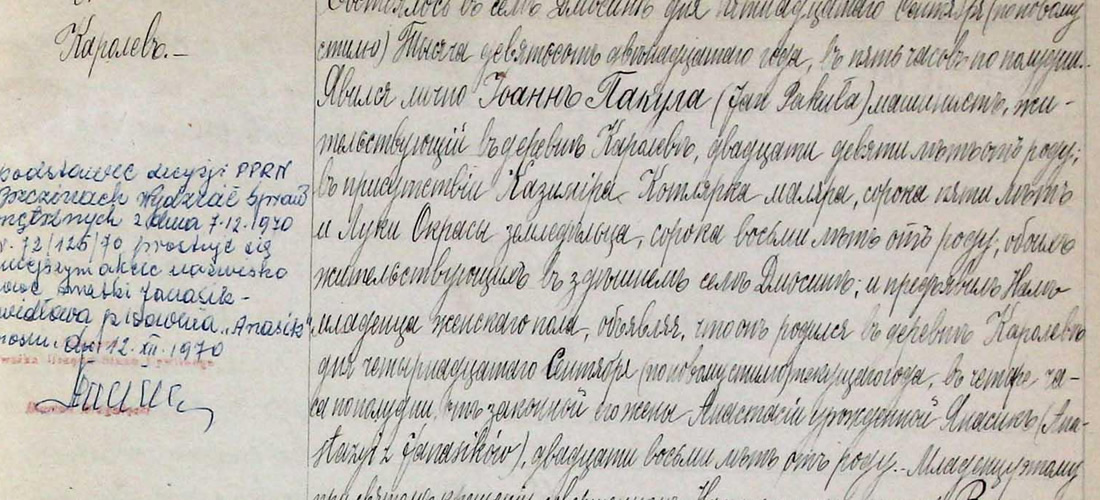 Каролевъ.-
podstawie decyzji PPRN
Brzezinach Wydział Spraw
Wewnętrznych z dnia 7.12.1970
72/126/70 prostuje się
niniejszym akcie nazwisko
matki Janasik-
prawidłowa pisownia "Anasik"
dn. 12. XII. 1970
Состоялось въ селѣ Дмосинѣ дня пятнадцатаго Сентября (по новому
стилю) Тысяча девятьсотъ двѣнадцатаго года, въ пять часовъ по полудни.-
Явился лично Іоаннъ Пакула (Jan Pakuła) машинистъ, жи-
тельствующій въ деревнѣ Каролевъ, двадцати девяти лѣтъ отъ роду;
въ присутствіи Казиміра Котлярка маляра, сорока пяти лѣтъ
и Луки Окрасы земледѣльца, сорока восьми лѣтъ отъ роду, обоихъ
жительствующихъ въ здѣшнемъ селѣ Дмосинъ; и предъявилъ Намъ
младенца женскаго пола, объявляя, что онъ родился въ деревнѣ Каролевъ
дня четырнадцатаго Сентября (по новому стилю) текущаго года, въ четыре ча-
са по полудни, отъ законной его жены Анастасіи урожденной Янасикъ (Ana-
stazyi z Janasików), двадцати восьми лѣтъ отъ роду.- Младенцу этому
при святомъ крещеніи